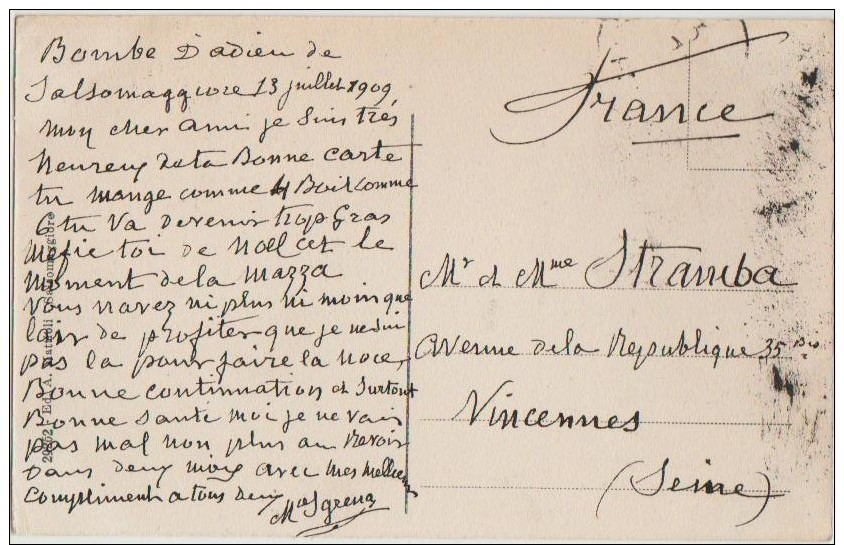 Bombe D'adieu de
Salsomaggiore 13 juillet 1909
mon cher ami je suis très
heureux de ta Bonne carte
tu mange comme 4 Boit comme
6 tu va devenir trop Gras
mefie toi de Noël cet le
moment de la mazza
vous navez ni plus ni moin que
lair de profiter que je ne sui
pas la pour faire la noce,
Bonne continuation et surtout
Bonne santé moi je ne vais
pas mal non plus au Revoir
Dans deux mois avec mes meilleurs
compliment a tous deux
France
Mr et Mme Stramba
Avenue de la Republique 35 Bis
Vincennes
(Seine)